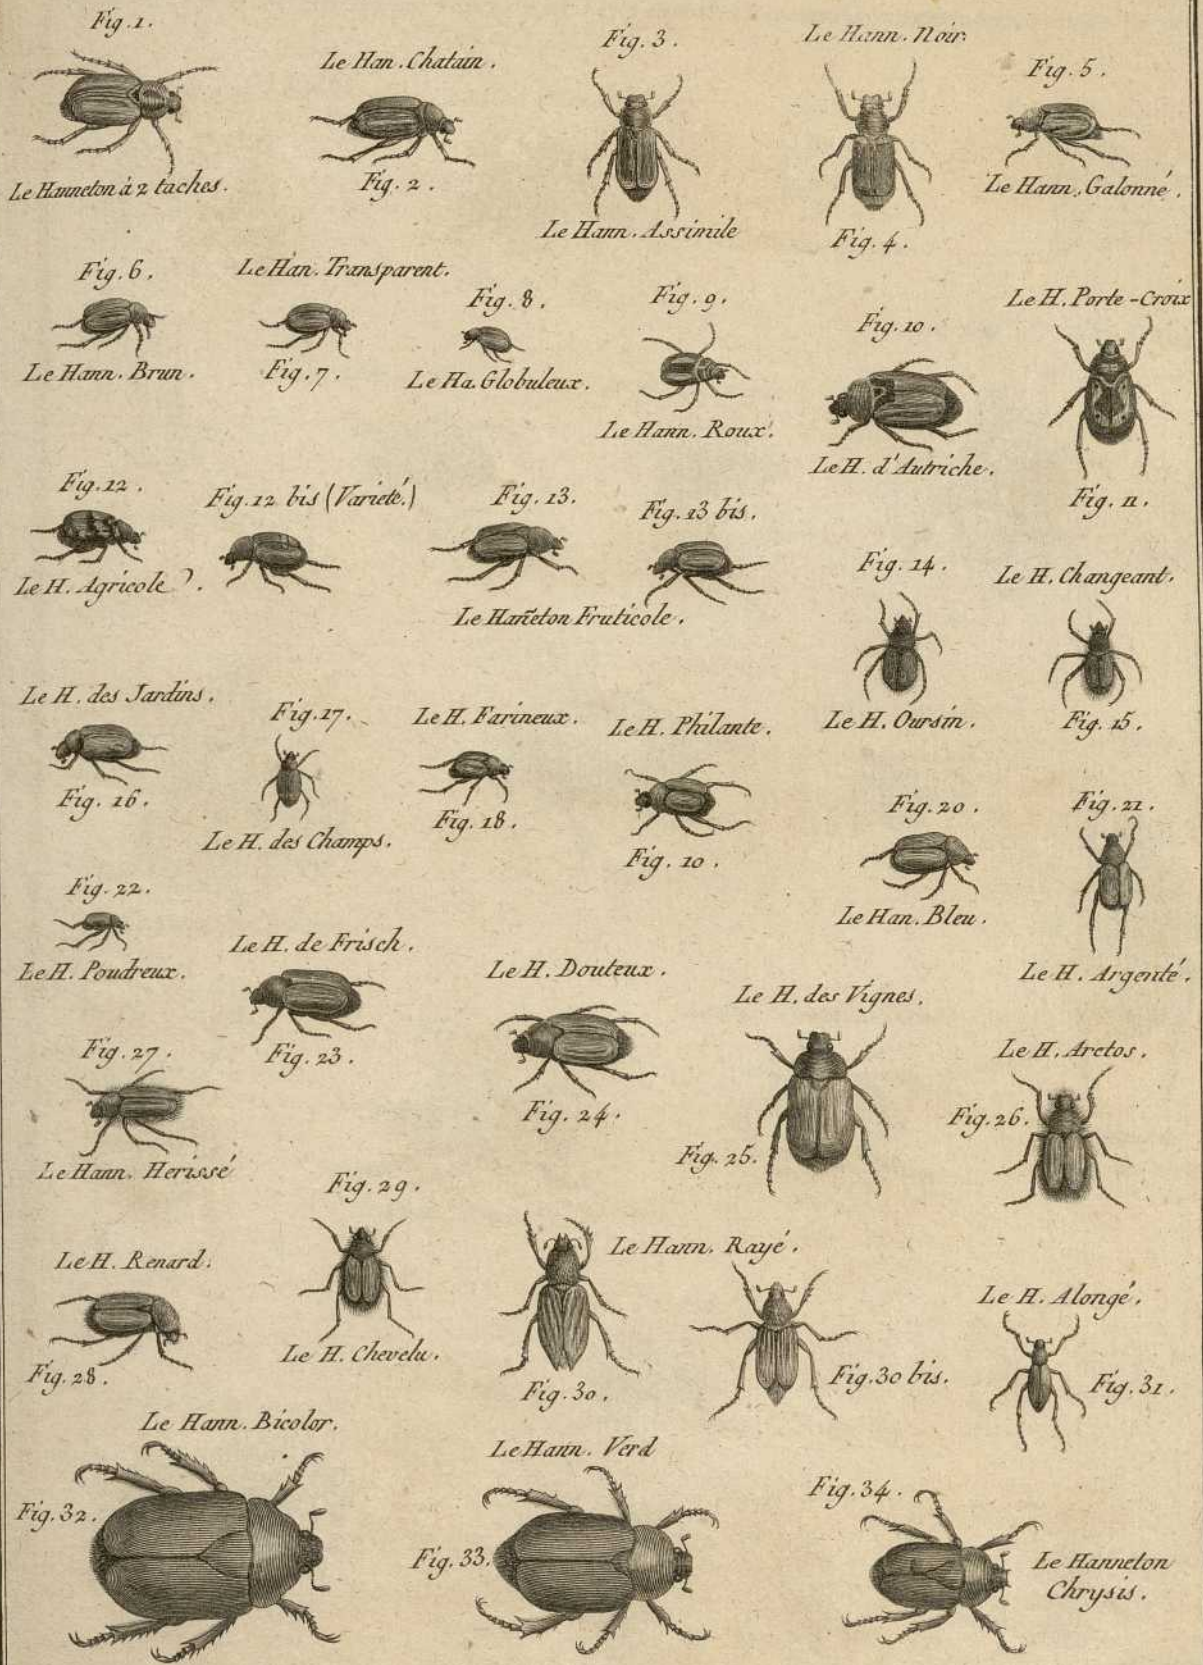 Fig. 1.
Le Hanneton à 2 taches.
Le Han. Chatain.
Fig. 2.
Fig. 3.
Le Hann. Assimile
Le Hann. Noir.
Fig. 4.
Fig. 5.
Le Hann. Galonné.
Fig. 6.
Le Hann. Brun.
Le Han. Transparent.
Fig. 7.
Fig. 8.
Le Ha. Globuleux.
Fig. 9.
Le Hann. Roux.
Fig. 10.
Le H. d'Autriche.
Le H. Porte-Croix
Fig. 11.
Fig. 12.
Le H. Agricole.
Fig. 12 bis (Varieté.)
Fig. 13.
Fig. 13 bis.
Le Hañeton Fruticole.
Fig. 14.
Le H. Oursin.
Le H. Changeant.
Fig. 15.
Le H. des Jardins.
Fig. 16.
Fig. 17.
Le H. des Champs.
Le H. Farineux.
Fig. 18.
Le H. Philante.
Fig. 10.
Fig. 20.
Le Han. Bleu.
Fig. 21.
Le H. Argenté.
Fig. 22.
Le H. Poudreux.
Le H. de Frisch.
Fig. 23.
Le H. Douteux.
Fig. 24.
Le H. des Vignes.
Fig. 25.
Le H. Arctos.
Fig. 26.
Fig. 27.
Le Hann. Herissé
Le H. Renard.
Fig. 28.
Fig. 29.
Le H. Chevelu.
Le Hann. Rayé.
Fig. 30.
Fig. 30 bis.
Le H. Alongé.
Fig. 31.
Le Hann. Bicolor.
Fig. 32.
Le Hann. Verd
Fig. 33.
Fig. 34.
Le Hanneton
Chrysis.